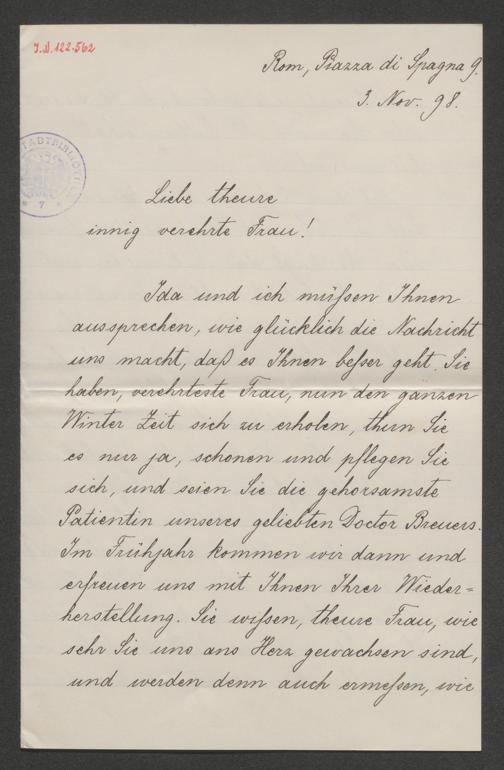 J.N. 122.562
Rom, Piazza di Spagna 9.
3. Nov. 98.
STADTBIBLIOT
* 7 *
Liebe theure
innig verehrte Frau!
Ida und ich müßen Ihnen
aussprechen, wie glücklich die Nachricht
uns macht, daß es Ihnen beßer geht. Sie
haben, verehrteste Frau, nun den ganzen
Winter Zeit sich zu erholen, thun Sie
es nur ja, schonen und pflegen Sie
sich, und seien Sie die gehorsamste
Patientin unseres geliebten Doctor Breuers.
Im Frühjahr kommen wir dann und
erfreuen uns mit Ihnen Ihrer Wieder=
herstellung. Sie wißen, theure Frau, wie
sehr Sie uns ans Herz gewachsen sind,
und werden denn auch ermeßen, wie